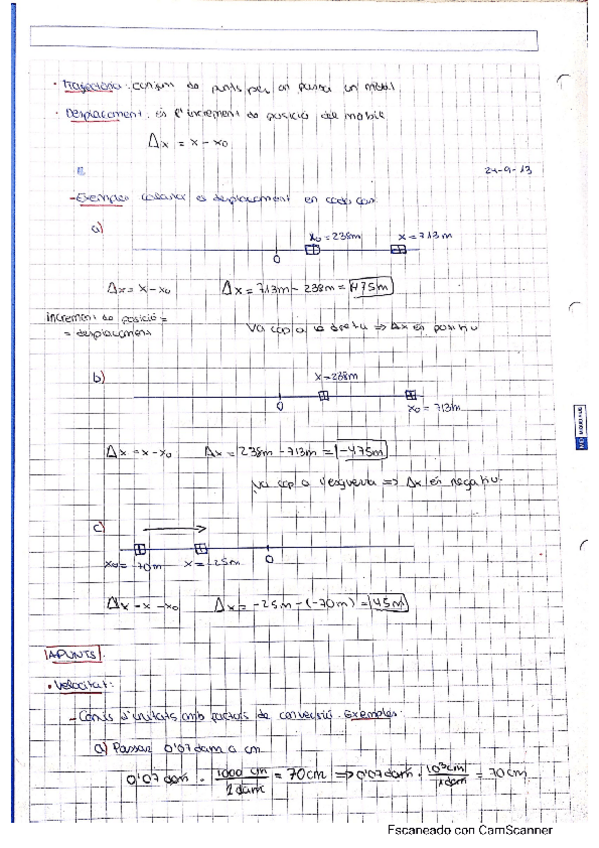 • Trajectòria: conjunt de punts per on passa un mòbil
• Desplaçament: és l'increment de posició del mòbil
Δx = x - x₀
24-9-13
- Exemples calcular el desplaçament en cada cas
a)
x₀ = 238m x = 713m
0
Δx = x - x₀ Δx = 713m - 238m = 475m
increment de posició =
= desplaçament
Va cap a la dreta => Δx és positiu
b)
x = 238m
0
x₀ = 713m
Δx = x - x₀ Δx = 238m - 713m = -475m
Va cap a l'esquerra => Δx és negatiu.
c)
x₀ = -70m x = -25m 0
Δx = x - x₀ Δx = -25m - (-70m) = 45m
APUNTS.
• Velocitat:
- Canvis d'unitats amb factors de conversió. Exemples.
a) Passar 0'07 dam a cm
0'07 dam · 1000 cm / 1 dam = 70cm => 0'07 dam · 10³ cm / 1 dam = 70cm
Escaneado con CamScanner